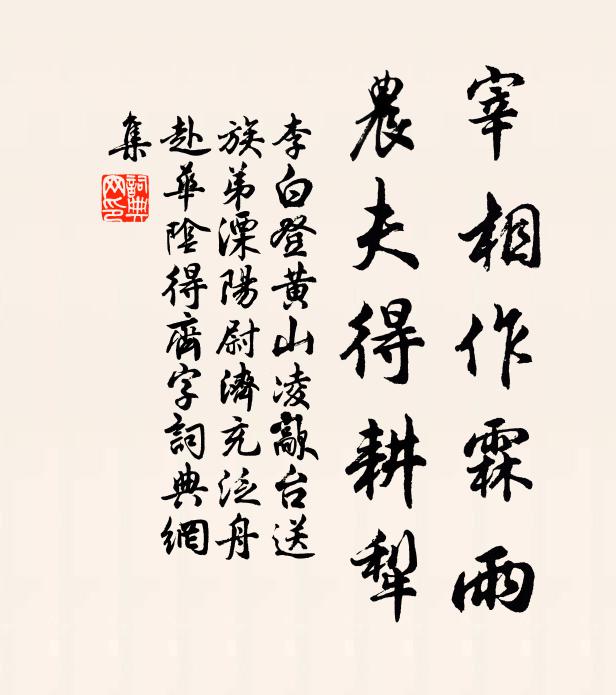 宰相作霖雨
農夫得耕犁
李白登黄山凌歊台送
族弟溧陽尉濟充泛舟
赴華陰得齊字詞典網
集
詞典網印